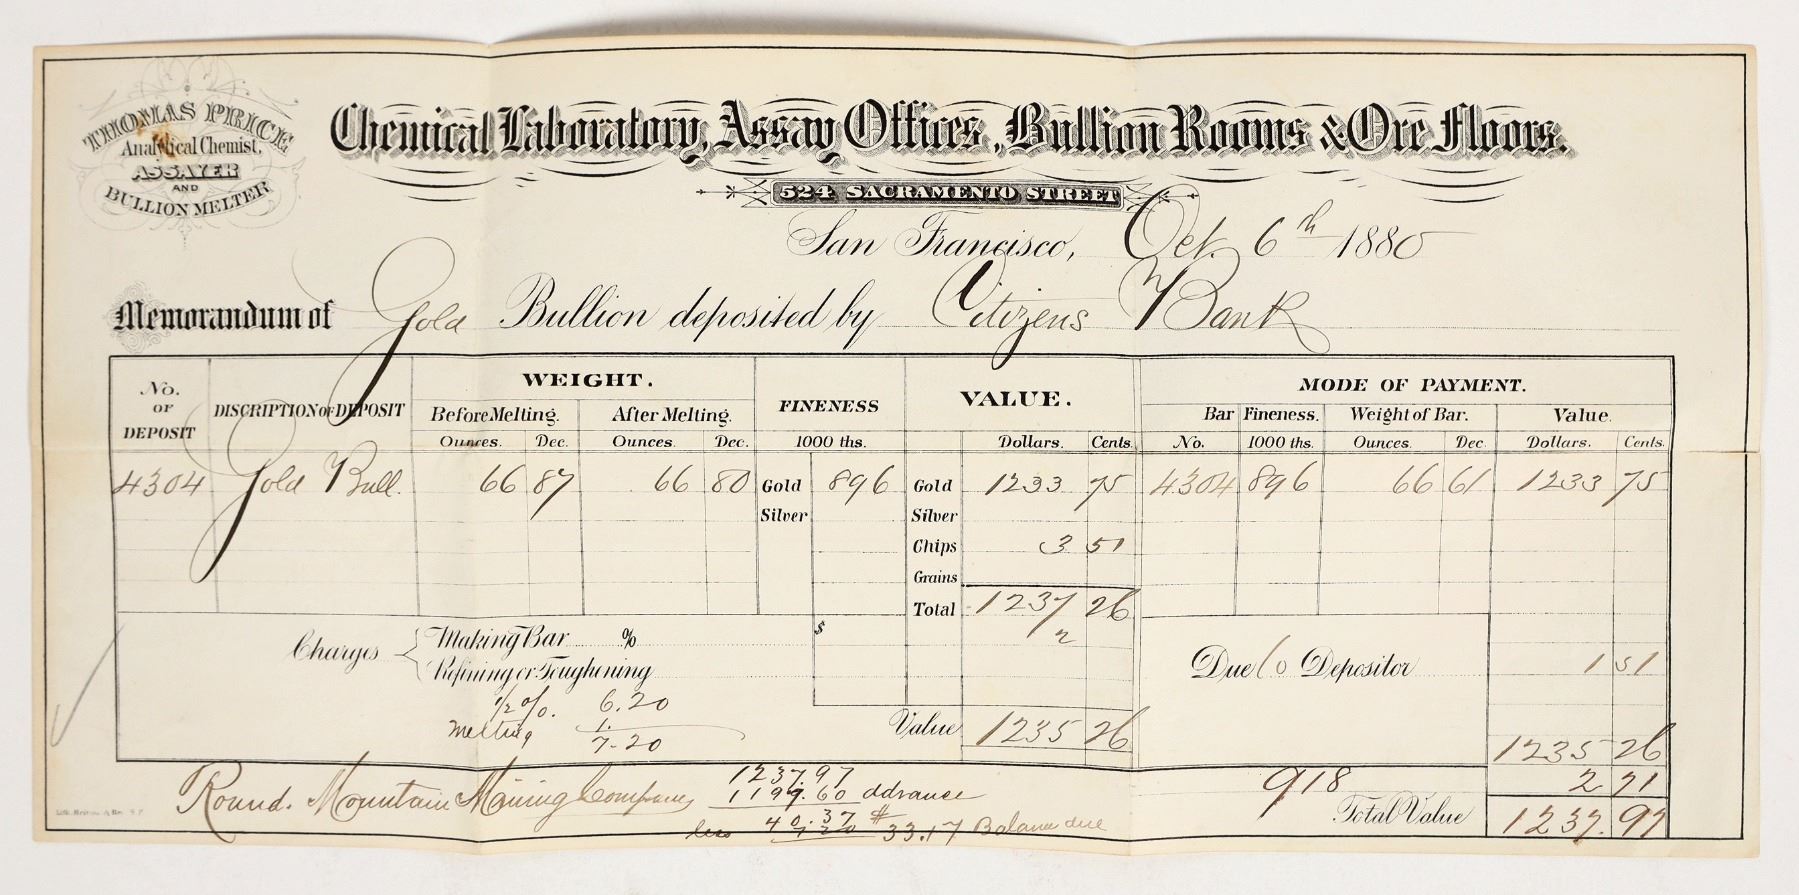 THOMAS PRICE
Analytical Chemist,
ASSAYER
AND
BULLION MELTER
Chemical Laboratory, Assay Offices, Bullion Rooms & Ore Floors.
524 SACRAMENTO STREET
San Francisco, Oct. 6th 1880
Memorandum of Gold Bullion deposited by Citizens Bank
No. OF DEPOSIT DISCRIPTION OF DEPOSIT WEIGHT. FINENESS VALUE. MODE OF PAYMENT.
Before Melting. After Melting. Bar Fineness. Weight of Bar. Value.
Ounces. Dec. Ounces. Dec. 1000 ths. Dollars. Cents. No. 1000 ths. Ounces. Dec. Dollars. Cents.
4304 Gold Bull. 66 87 66 80 Gold 896 Gold 1233 75 4304 896 66 61 1233 75
Silver Silver
Chips 3 51
Grains
Total 1237 26
Charges Making Bar % $ 2
Refining or Toughening Due to Depositor 1 51
1/2 %. 6.20
Melting 1. Value 1235 26
7.20 1235 26
Round Mountain Mining Company 1237.97 918 2 71
1197.60 advance Total Value 1237.97
less 40.37
7.20 $33.17 Balance due